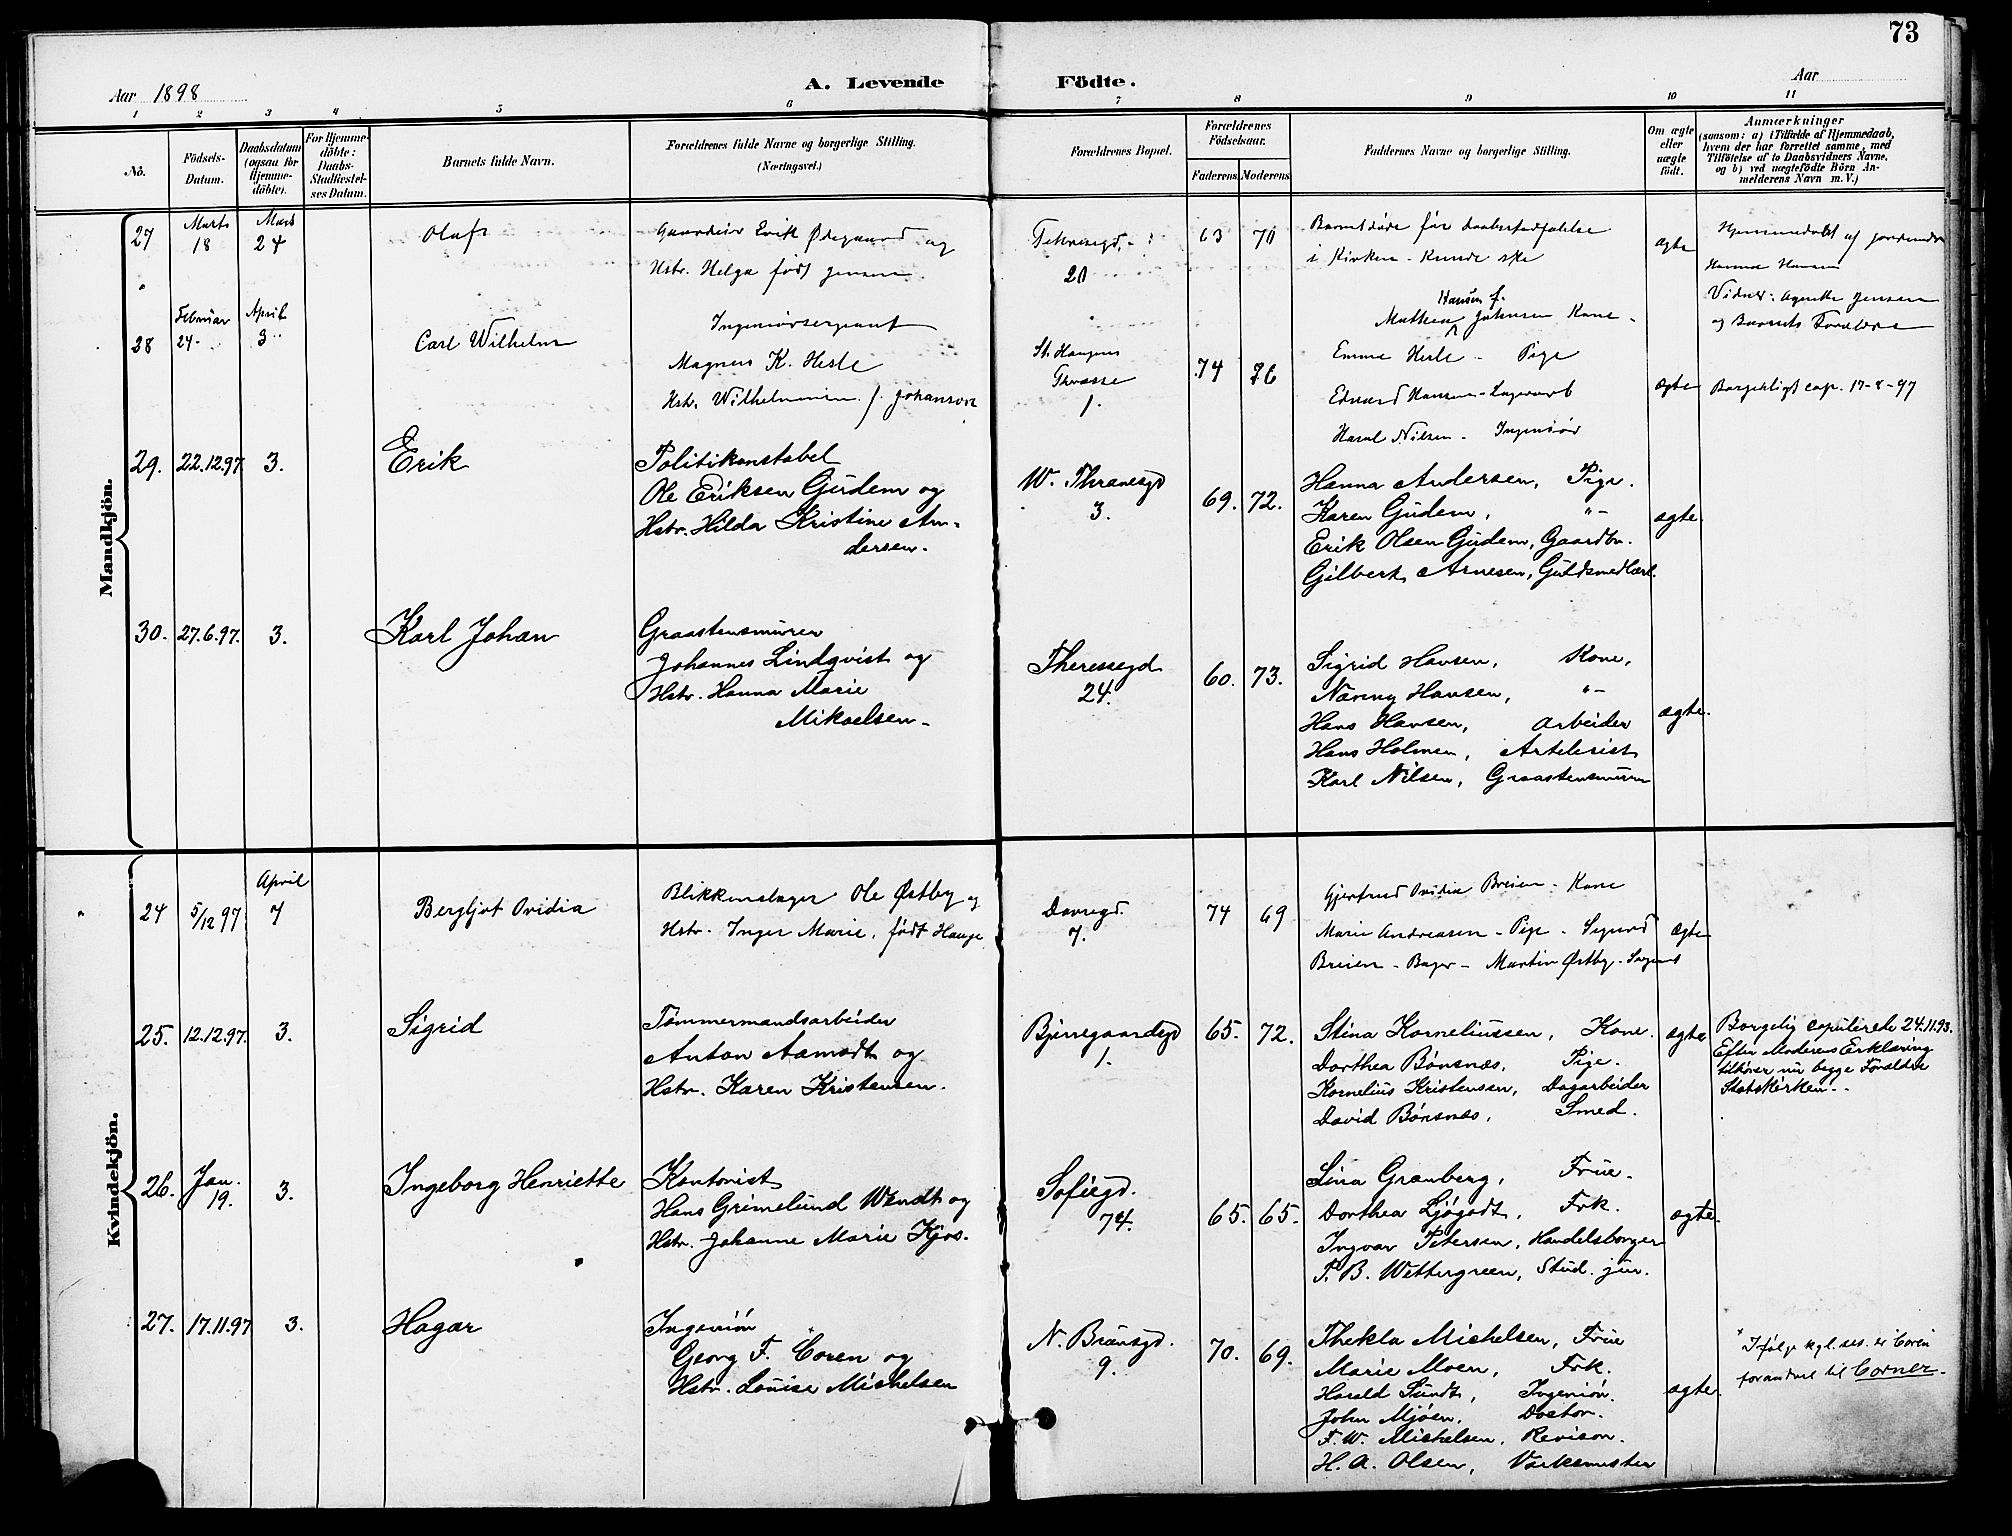 73
Aar 1898
A. Levende Födte.
Aar
1 2 3 4 5 6 7 8 9 10 11
No.
Födsels-
Datum.
Daabsdatum
(ogsaa for
Hjemme-
döbte).
For Hjemme-
döbte:
Daabs-
Stadfæstel-
ses Datum.
Barnets fulde Navn.
Forældrenes fulde Navne og borgerlige Stilling.
(Næringsvei.)
Forældrenes Bopæl.
Forældrenes
Födselsaar.
Faderens. Moderens.
Faddernes Navne og borgerlige Stilling.
Om ægte
eller
uægte
födt.
Anmærkninger
(saasom: a) i Tilfælde af Hjemmedaab,
hvem der har forrettet samme, med
Tilföielse af to Daabsvidners Navne,
og b) ved uægtefödte Börn An-
melderens Navn m. V.)
Mandkjön.
27
Marts
18
Marts
24
Olaf
Gaardeier Erik Ødegaard og
Hstr. Helga født Jensen
20
63 70
Barnet døde før Daabsstadfæstelse
i Kirken kunde ske
ægte
Hjemmedøbt af Jordemoder
Hanna Hansen
Vidner: Agnethe Jensen
og Barnets Forældre
28
Februar
24
April
3
Carl Wilhelm
Ingeniørsergeant
Magnus K. Hesle
Hstr. Wilhelmine f. Johanson
St. Haugens
Terasse
1.
74 76
Hansen f.
Mathea Johnsen Kone
Emma Hesle - Pige
Edvard Hansen - Lagerarb
Nilsen - Ingeniør
ægte
Borgerligt cop. 17-8-97
29. 22.12.97 3.
Erik
Politikonstabel
Ole Eriksen Gudem og
Hstr. Hilda Kristine An-
dersen.
W. Thranesgd
3.
69. 72.
Hanna Andersen, Pige.
Karen Gudem, "-
Erik Olsen Gudem, Gaardbr.
Gilbert Arnesen, Guldsmedlærl.
ægte
30. 27.6.97. 3.
Karl Johan
Graastensmurer
Johannes Lindqvist og
Hstr. Hanna Marie
Mikaelsen
Theresesgd
24.
60. 73.
Sigrid Hansen, Kone,
Nænny Hansen, "-
Hans Hansen, Arbeider
Hans Holmen, Artelerist
Karl Nilsen, Graastensmurer
ægte.
Kvindekjön.
24 5/12 97
April
7
Bergljot Ovidia
Blikkenslager Ole Østby og
Hstr. Inger Marie, født Hauge
Dovregd.
7.
74 69
Gjertrud Ovidia Breien - Kone
Marie Andreasen - Pige - Sigurd
Breien - Bager - Martin Østby -
ægte
25. 12.12.97 3.
Sigrid
Tømmermandsarbeider
Anton Aamodt og
Hstr. Karen Kristensen.
Bjerregaardsgd
1.
65. 72.
Stina Korneliussen, Kone.
Dorthea Bønsnæs, Pige.
Kornelius Kristensen, Dagarbeider
David Bønsnæs, Smed.
ægte
Borgelig copulerede 24.11.93.
Efter Moderens Erklæring
tilhører nu begge Forældre
Statskirken.
26.
Jan.
19.
3.
Ingeborg Henriette
Kontorist
Hans Grimelund Wendt og
Hstr. Johanne Marie Kjos.
Sofiegd.
74.
65. 65.
Lina Granberg, Frue.
Dorthea Ljøgodt, Frk.
Ingvar Petersen, Handelsborger
P. B. Wettergreen, Stud. jur.
ægte.
27. 17.11.97 3.
Hagar
Ingeniør
Georg F. Coren og
Hstr. Louise Michelsen
N. Brunsgd.
9.
70. 69.
Thekla Michelsen, Frue
Marie Moen, Frk.
Harald Sundt, Ingeniør.
John Mjøen, Doctor.
F. W. Michelsen, Revisor.
H. A. Olsen, Værksmester
ægte.
* Ifølge kgl. res. er Coren
forandret til Corner.